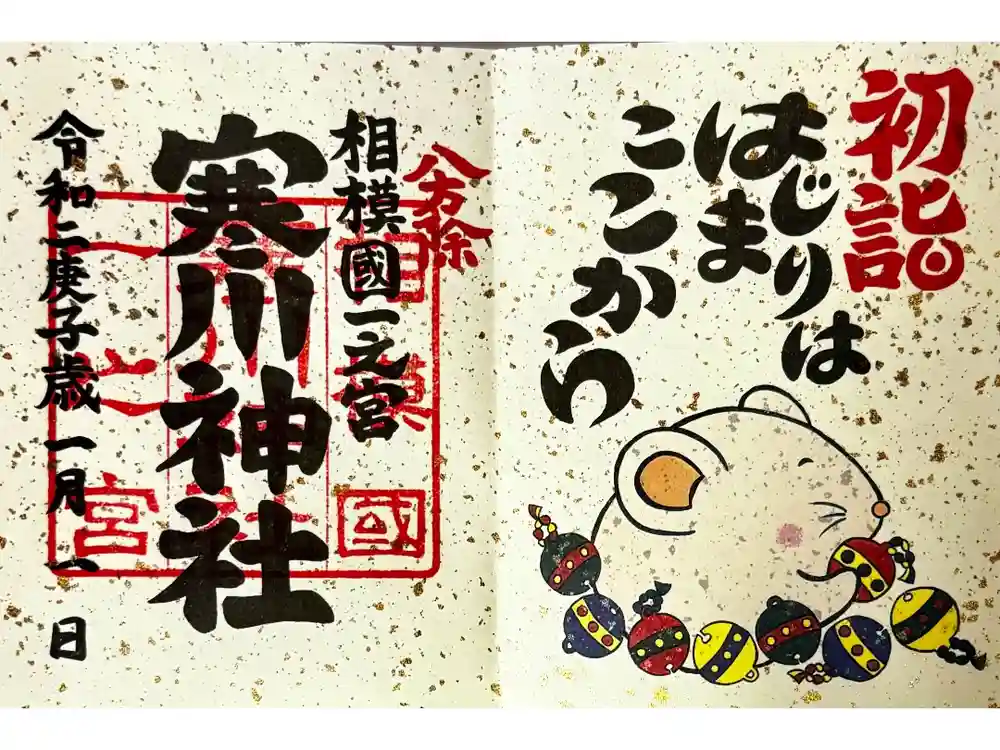 初詣
はじまりは
ここから
八方除
相模國一之宮
寒川神社
令和二庚子歳 一月 八日
相模國
一之宮